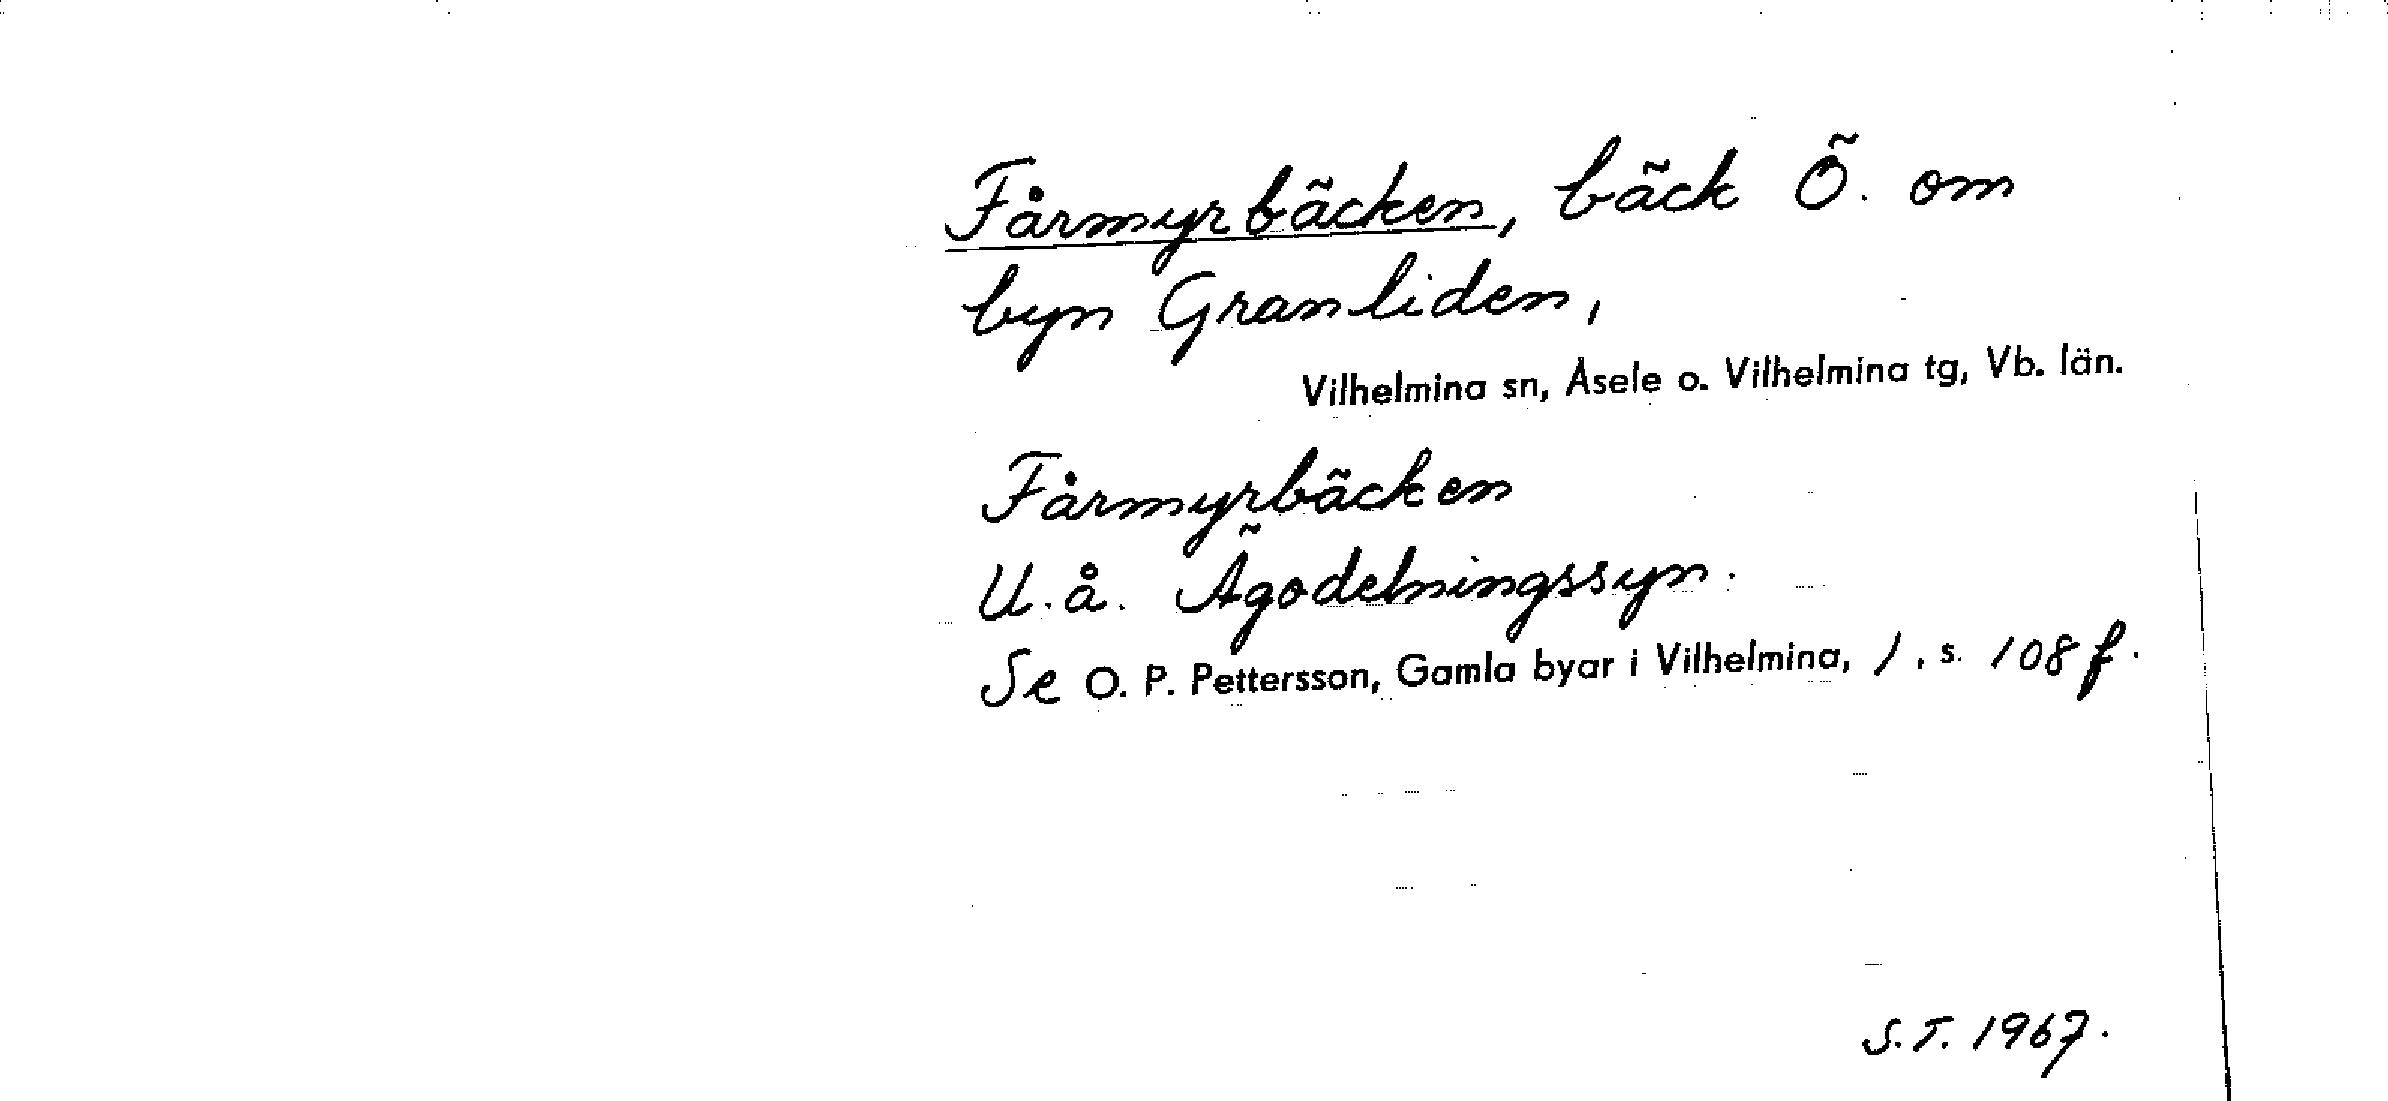 Fårmyrbäcken, bäck Ö. om
byn Granliden,
Vilhelmina sn, Åsele o. Vilhelmina tg, Vb. län.
Fårmyrbäcken
U.å. Ägodelningssyn.
Se O. P. Pettersson, Gamla byar i Vilhelmina, 1, s. 108 f.
S.T. 1967.